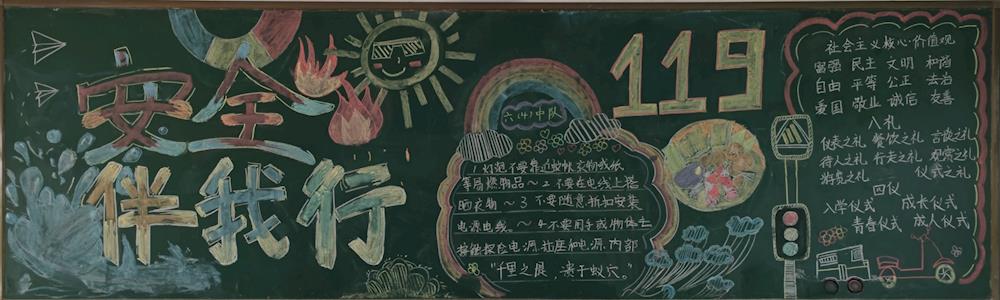 安全
伴我行
119
六(4)中队
1灯泡不要靠近蚊帐衣物或纸
等易燃物品~2不要在电线上搭
晒衣物~3不要随意拆卸安装
电源电线。~4不要用手或物体去
接触探险电源,插座和电源,内部
"千里之堤,溃于蚁穴。"
社会主义核心价值观
富强 民主 文明 和谐
自由 平等 公正 法治
爱国 敬业 诚信 友善
八礼
仪表之礼 餐饮之礼 言谈之礼
待人之礼 行走之礼 观赏之礼
游览之礼 仪式之礼
四仪
入学仪式 成长仪式
青春仪式 成人仪式